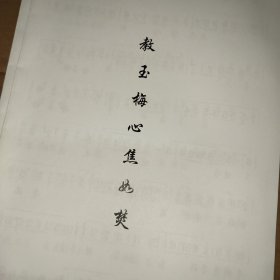 教玉梅心焦如焚